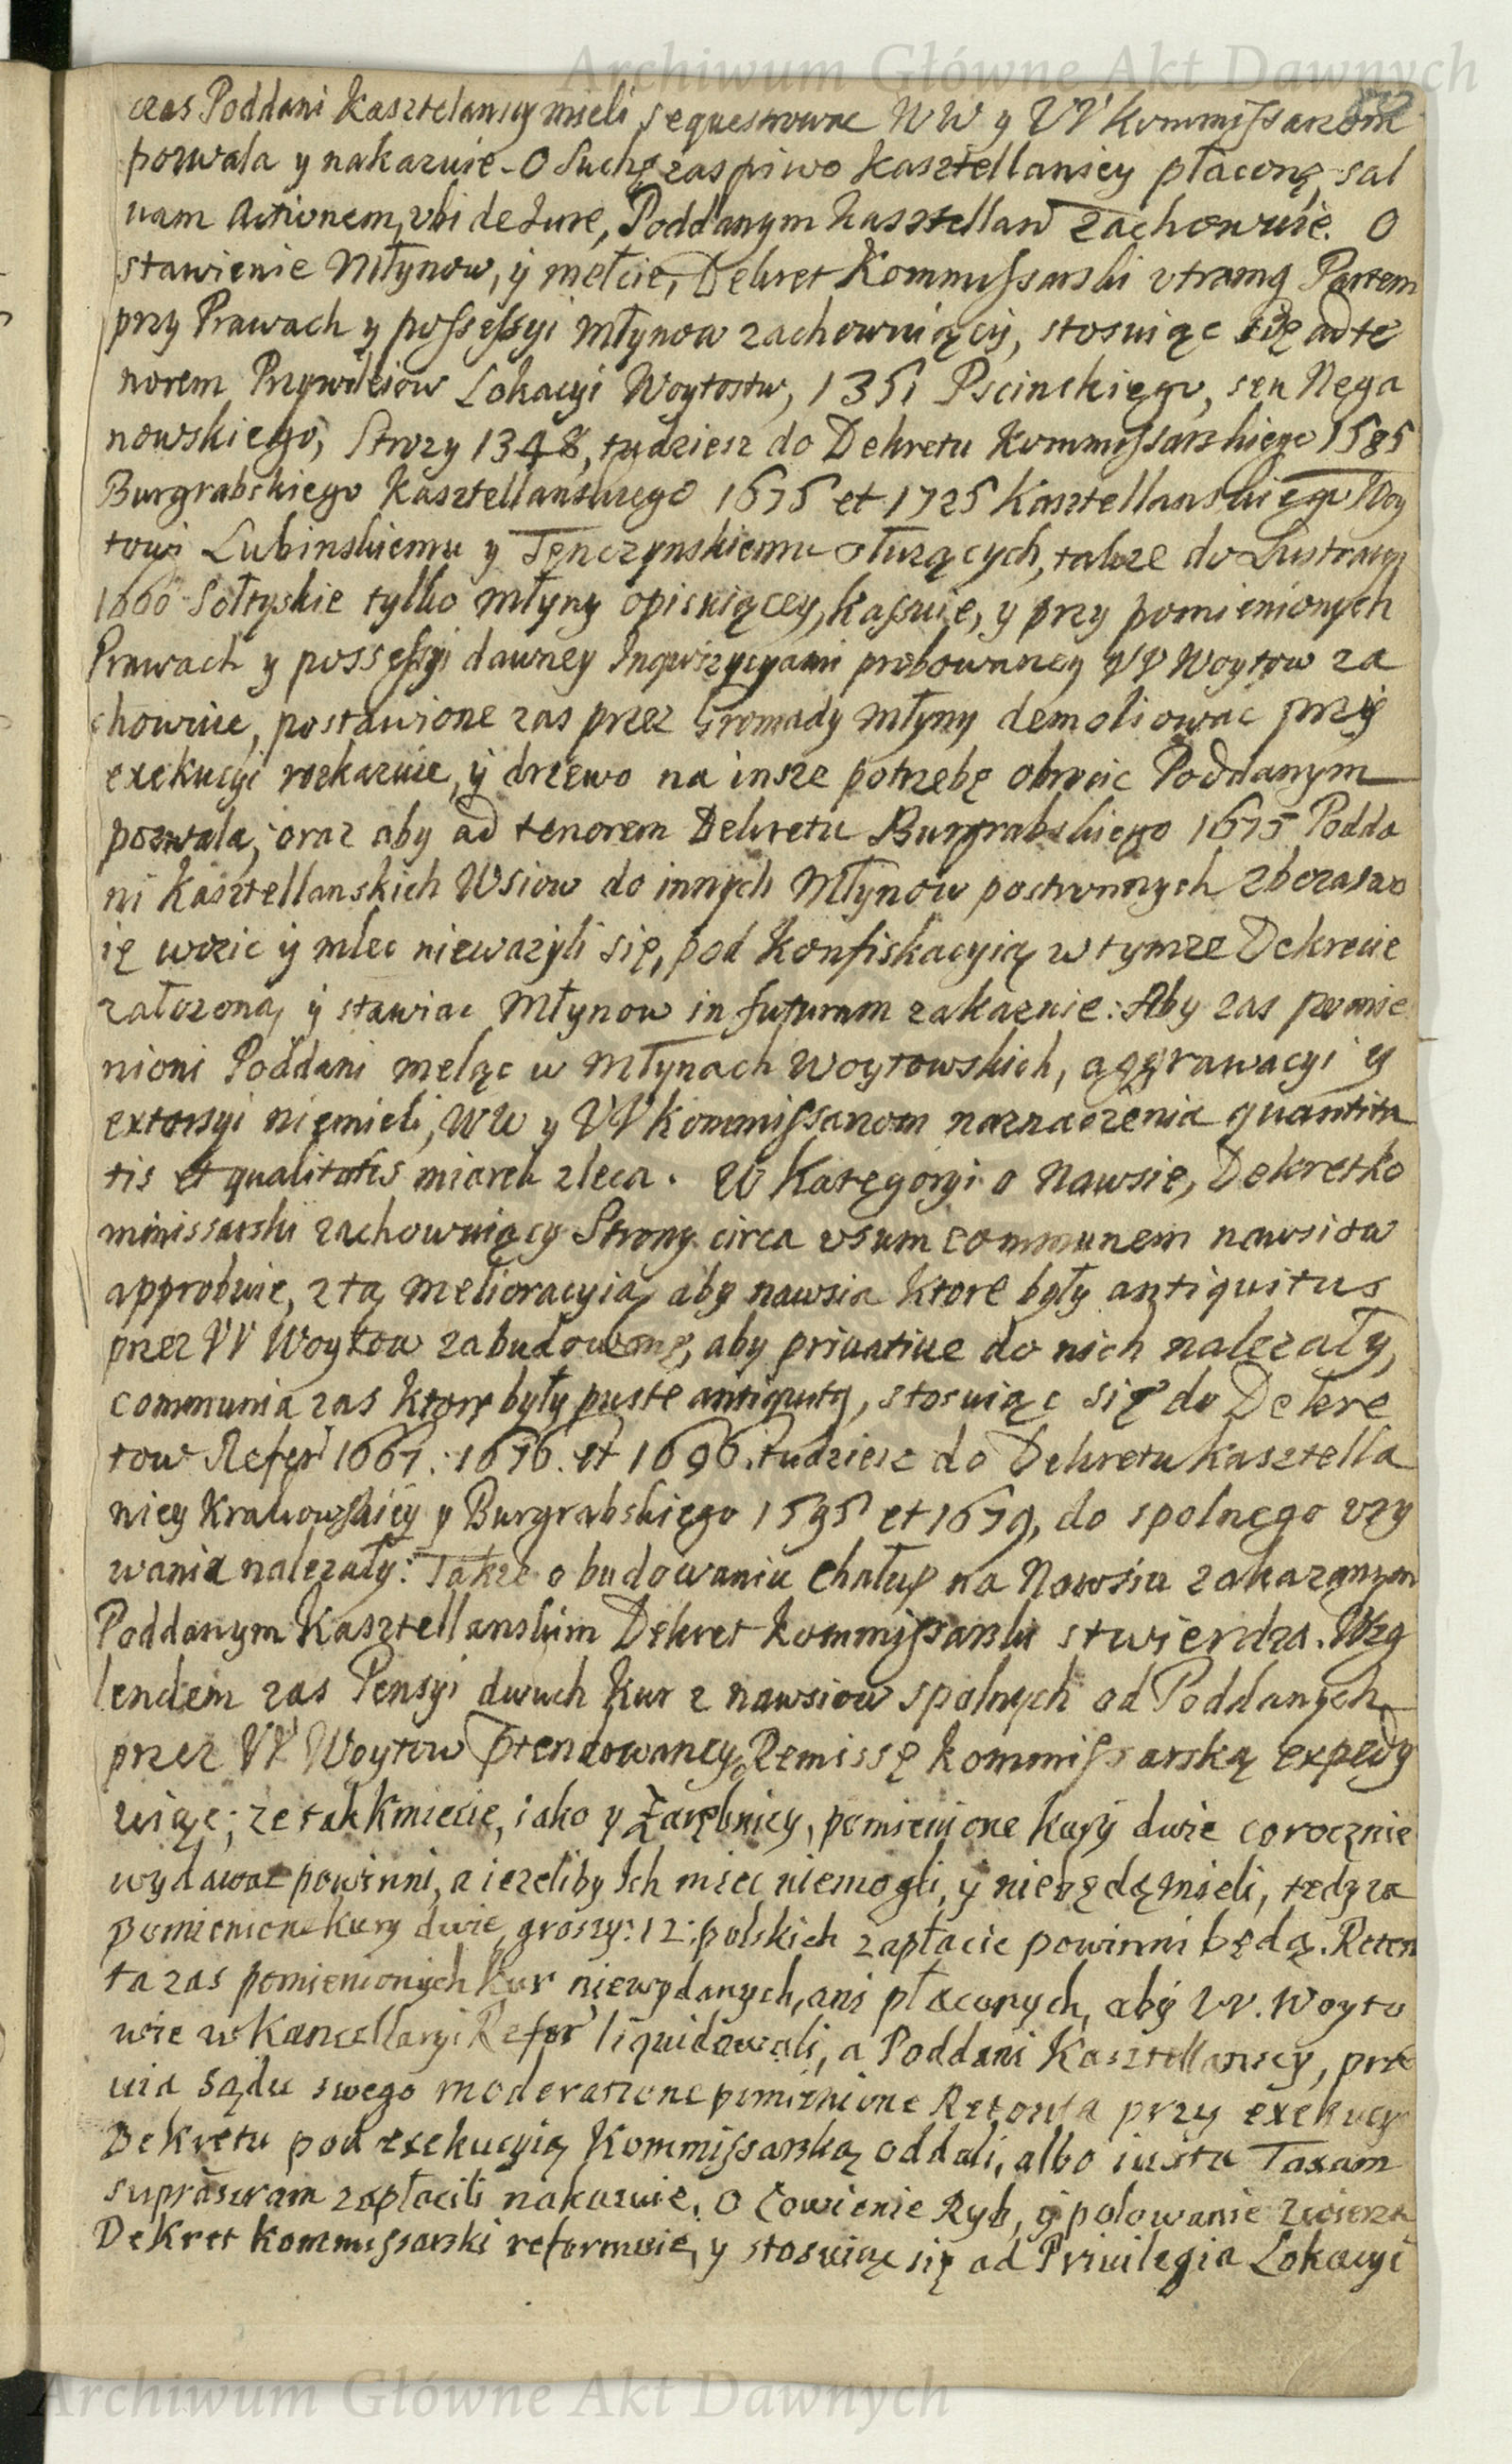 Archiwum Główne Akt Dawnych
czas Poddani Kasztelanscy mieli sequestrowac WW y VV Kommissarzom
pozwala y nakazuie - O Suchę zas piwo Kasztellaniey płaconę, sal
vam Actionem, vbi de Iure, Poddanym Kasztellań zachowuie. O
stawienie Młynow, ÿ mełcie, Dekret Kommissarski vtramq Partem
przy Prawach y possessyi Młynow zachowuiący, stosuiąc się ad te
norem Przywileiow Lokacyi Woytostw, 1351 Pscinskięgo, seu Nega
nowskiego, Strozy 1348, tudziesz do Dekretu Kommissarskiego 1585
Burgrabskiego Kasztellanskiego 1675 et 1725 Kasztellanskięgo Woy
towi Lubinskiemu y Tęnczynskiemu słuzących, takze do Lustracyi
1660 Sołtyskie tylko Młyny opisuiącey, kassuie, y przy pomienionych
Prawach y possessyi dawney Inqwizycyami probowaney VV Woytow za
chowuie, postawione zas przez Gromady Młyny demoliowac przÿ
exekucyi roskazuie, ÿ drzewo na insze potrzebę obrocic Poddanym
pozwala, oraz aby ad tenorem Dekretu Burgrabskiego 1675 Podda
ni Kasztellanskich Wsiow do innych Młynow postronnych zboza swo
ię wozic ÿ mlec niewazÿli się, pod Konfiskacyią w tymze Dekrecie
załozoną, ÿ stawiac Młynow in futurum zakazuie: Aby zas pomie
nioni Poddani meląc w Młynach Woytowskich, aggrawacyi y
extorsyi niemieli, WW y VV Kommissarzom naznaczenia quantita
tis et qualitatis miarek zleca. W Kategoryi o Nawsie, Dekret Ko
mmissarski zachowuiący Strony circa vsum communem nawsiow
approbuie, z tą melioracyią, aby nawsia ktore były antiquitus
przez VV Woytow zabudowanę, aby privative do nich nalezały,
communia zas ktorę były puste antiquitg, stosuiąc się do Dekre
tow Refer 1661. 1676. et 1696. tudziesz do Dekretu Kasztella
niey Krakowskiey y Burgrabskięgo 1595 et 1679, do spolnęgo vzy
wania nalezały: Takze o budowaniu Chałup na Nawsiu zakazanym
Poddanym Kasztellanskim Dekret Kommissarski stwierdza. Wzg
lendem zas Pensyi dwuch Kur z nawsiow spolnych od Poddanych
przez VV Woytow prętendowaney, Remissę Kommissarską expedy
uiąc, ze tak Kmiecie, iako y Zarębnicy, pomienione kury dwie corocznie
wydawac powinni, a iezeliby Ich miec niemogli, ÿ niebędą mieli, tedy za
pomienione kury dwie, groszy: 12: polskich zapłacic powinni będą. Reten
ta zas pomienionych Kur niewydanych, ani płaconych, abÿ VV. Woyto
wie w Kancellaryi Refer liquidowali, a Poddani Kasztellanscy, prae
uia Sądu swego moderatione pomienione Retenta przy exekucyi
Dekretu pod exekucyią Kommissarską oddali, albo iuxta Taxam
suprascram zapłacili nakazuie. O Łowienie Ryb, ÿ polowanie zwierza
Dekret Kommissarski reformuie, y stosuiąc się ad Privilegia Lokacyi
Archiwum Główne Akt Dawnych